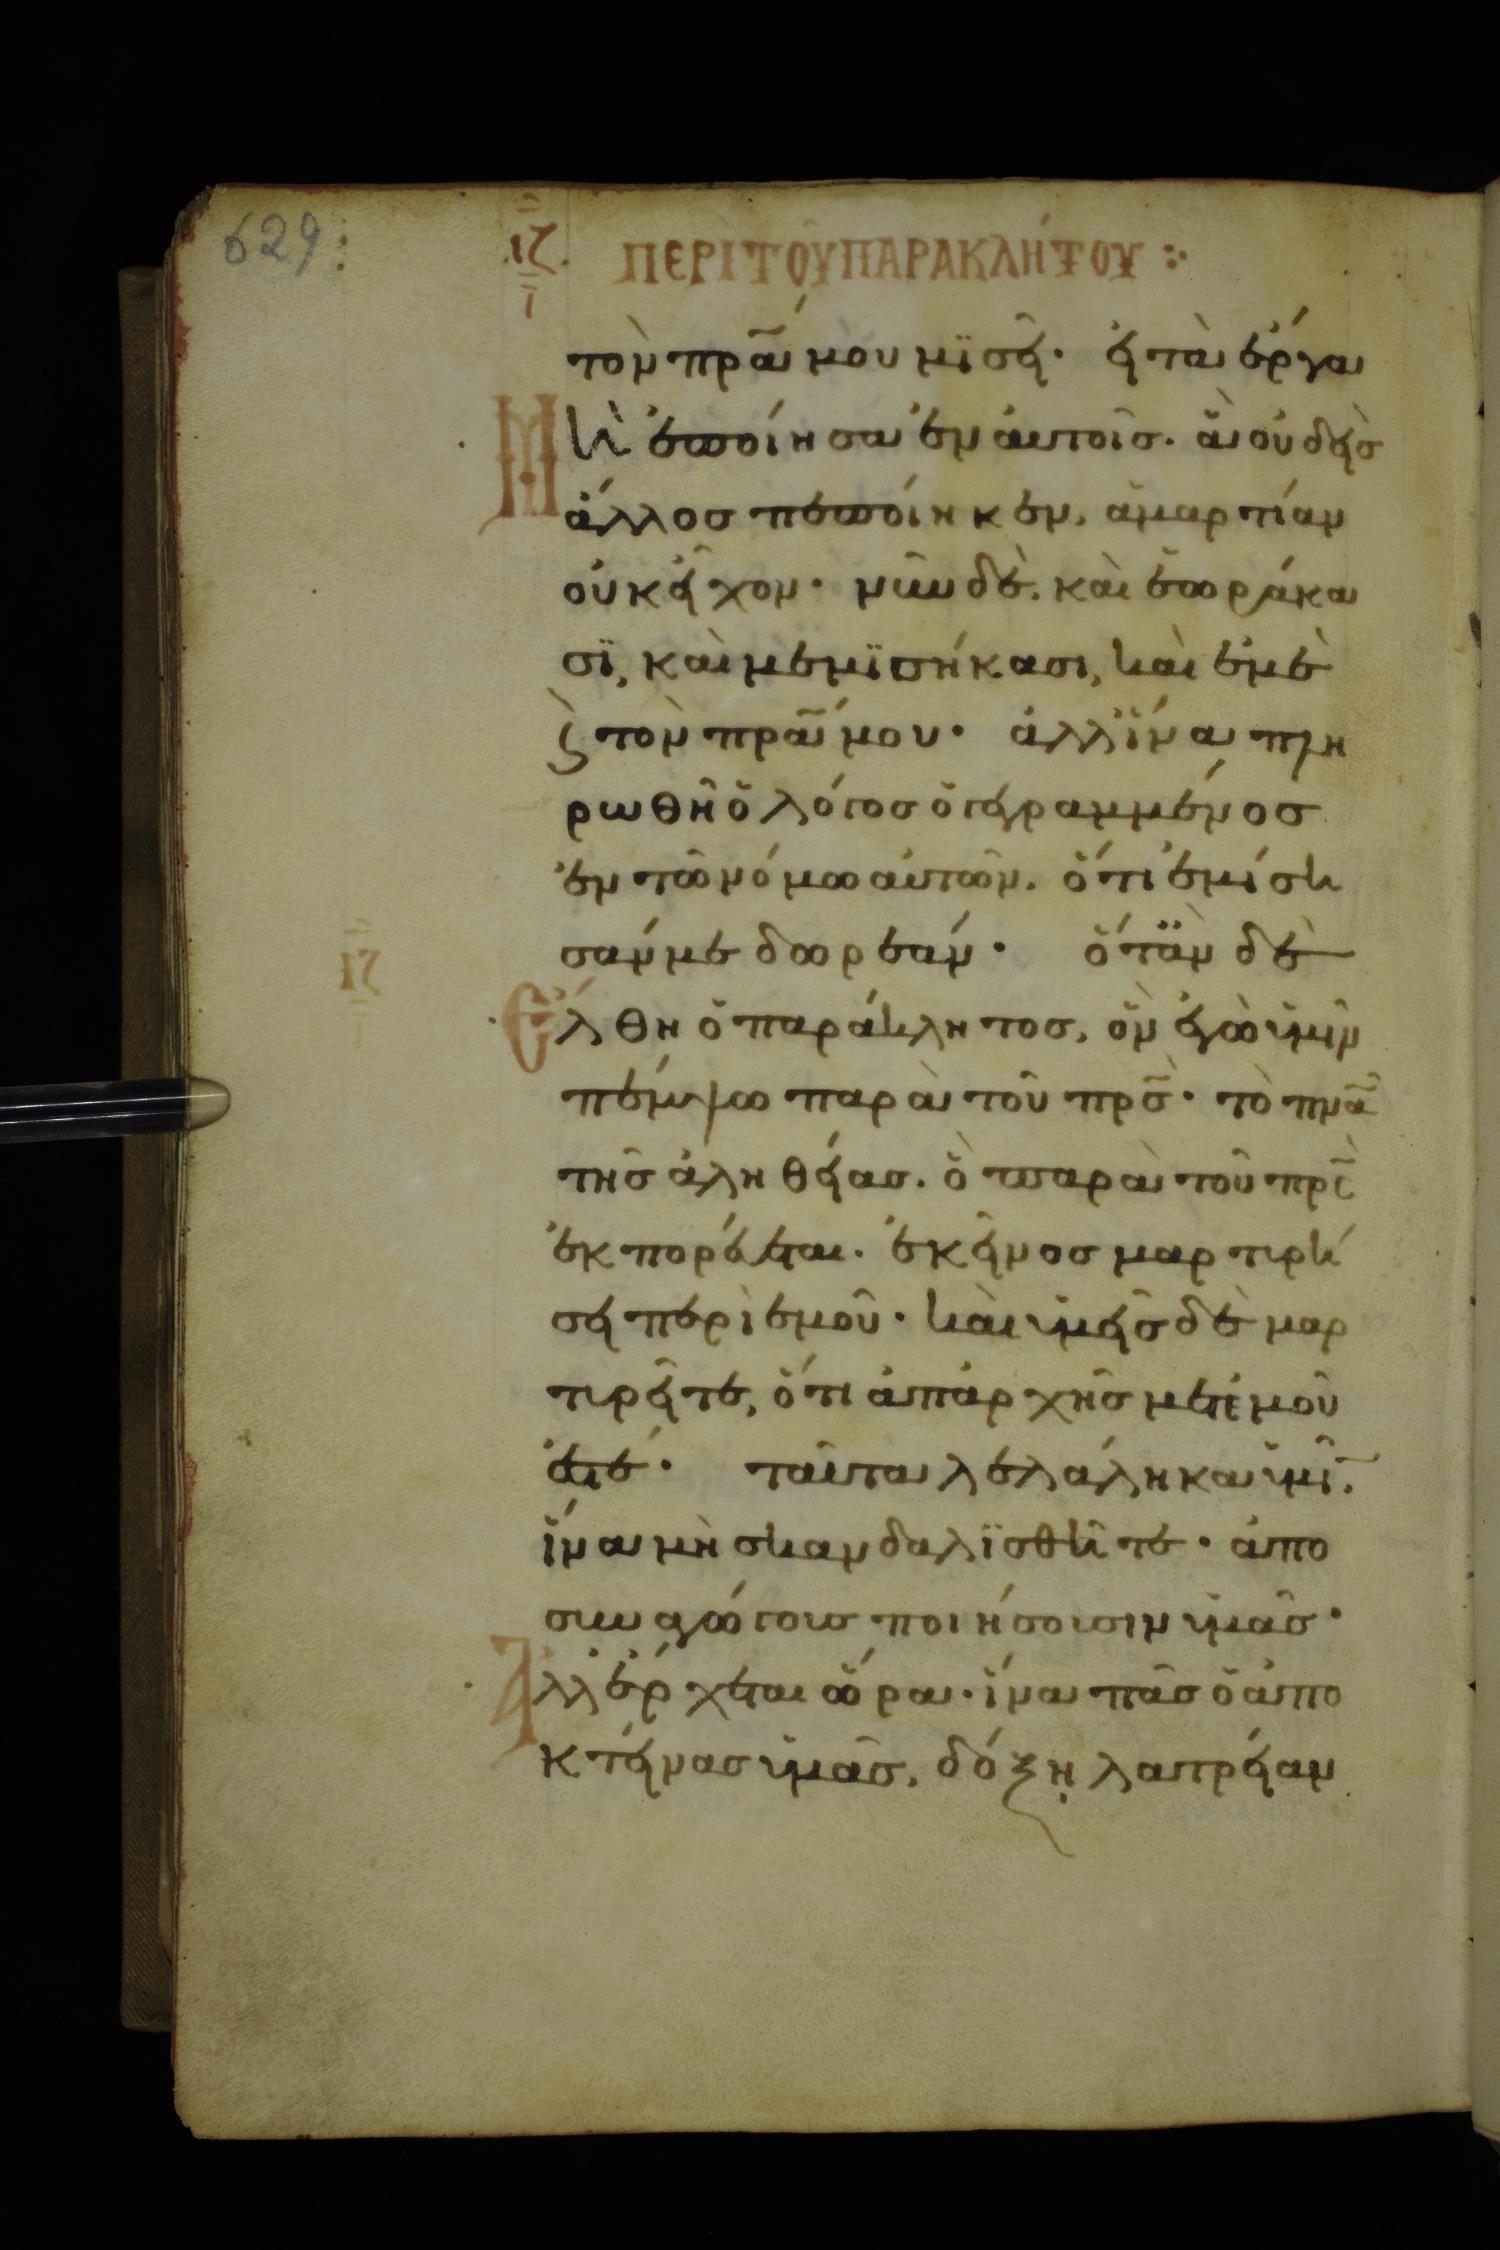 629:
ιζ ΠΕΡῚ ΤΟῦ ΠΑΡΑΚΛΉΤΟΥ ⁘
ι
τὸν πρ̅α μου μϊσεῖ· εἰ τὰ ἔργα
Μὴ ἐποίησα ἐν αὐτοῖσ. ἃ οὐδεὶσ
ἄλλοσ πεποίηκεν, ἁμαρτίαν
οὐκ εἶχον· νῦν δὲ. καὶ ἑωράκα
σϊ, καὶ μεμϊσήκασι, καὶ ἐμὲ
ϗ τὸν πρ̅α μου· ἀλλ ἵνα πλη
ρωθῆ ὁ λόγοσ ὁ γεγραμμένοσ
ἐν τῶ νόμω αὐτῶν. ὅτι ἐμίση
σάν με δωρεάν· ὅτἂν δὲ
ιζ
Ἔλθη ὁ παράκλητοσ, ὃν ἐγὼ ὑμῖν
πέμψω παρὰ τοῦ πρ̅σ· τὸ πν̅α
τῆσ ἀληθείασ. ὃ παρὰ τοῦ πρ̅σ
ἐκπορεύεται. ἐκεῖνοσ μαρτυρή
σει περὶ ἐμοῦ· καὶ ὑμεῖσ δὲ μαρ
τυρεῖτε, ὅτι ἀπ ἀρχῆσ μετ ἐμοῦ
ἐστέ· ταῦτα λελάληκα ὑμῖ̅.
ἵνα μὴ σκανδαλϊσθῆτε· ἀπο
συναγώγουσ ποιήσουσιν ὑμᾶσ·
Ἀλλ ἔρχεται ὥρα· ἵνα πᾶσ ὁ ἀπο
κτείνασ ὑμᾶσ, δόξη λατρείαν